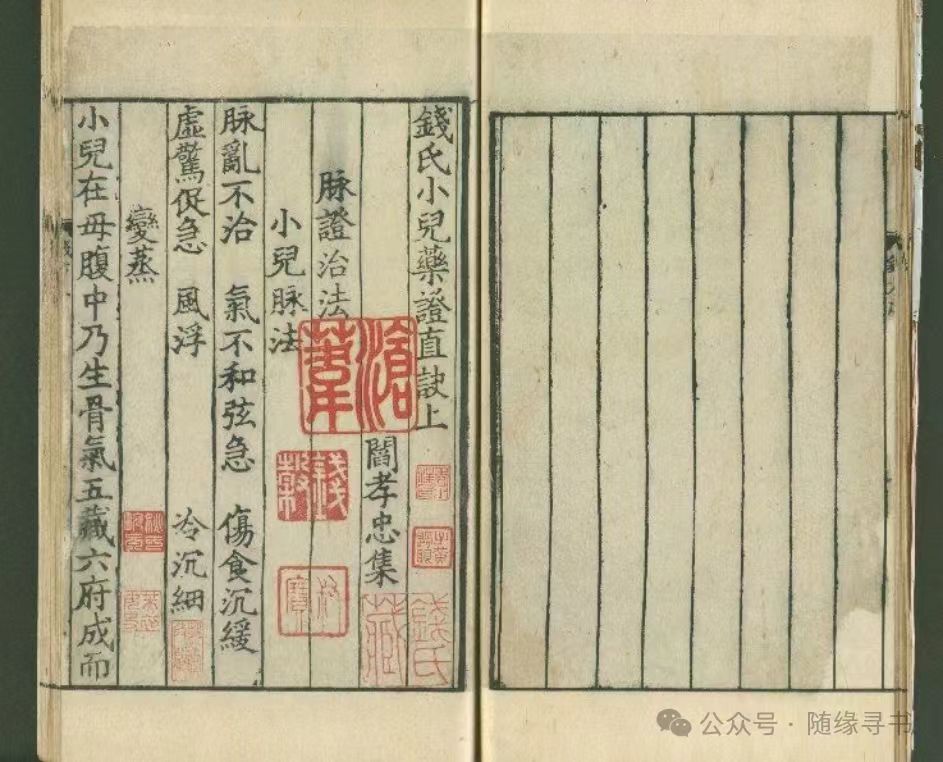 錢氏小兒藥證直訣上
閻孝忠集
脉證治法
小兒脉法
脉亂不治　氣不和弦急　傷食沉緩
虛驚促急　風浮　冷沉細
變蒸
小兒在母腹中乃生骨氣五藏六府成而
滄葦
錢穀
錢氏藏
公众号·随缘寻书